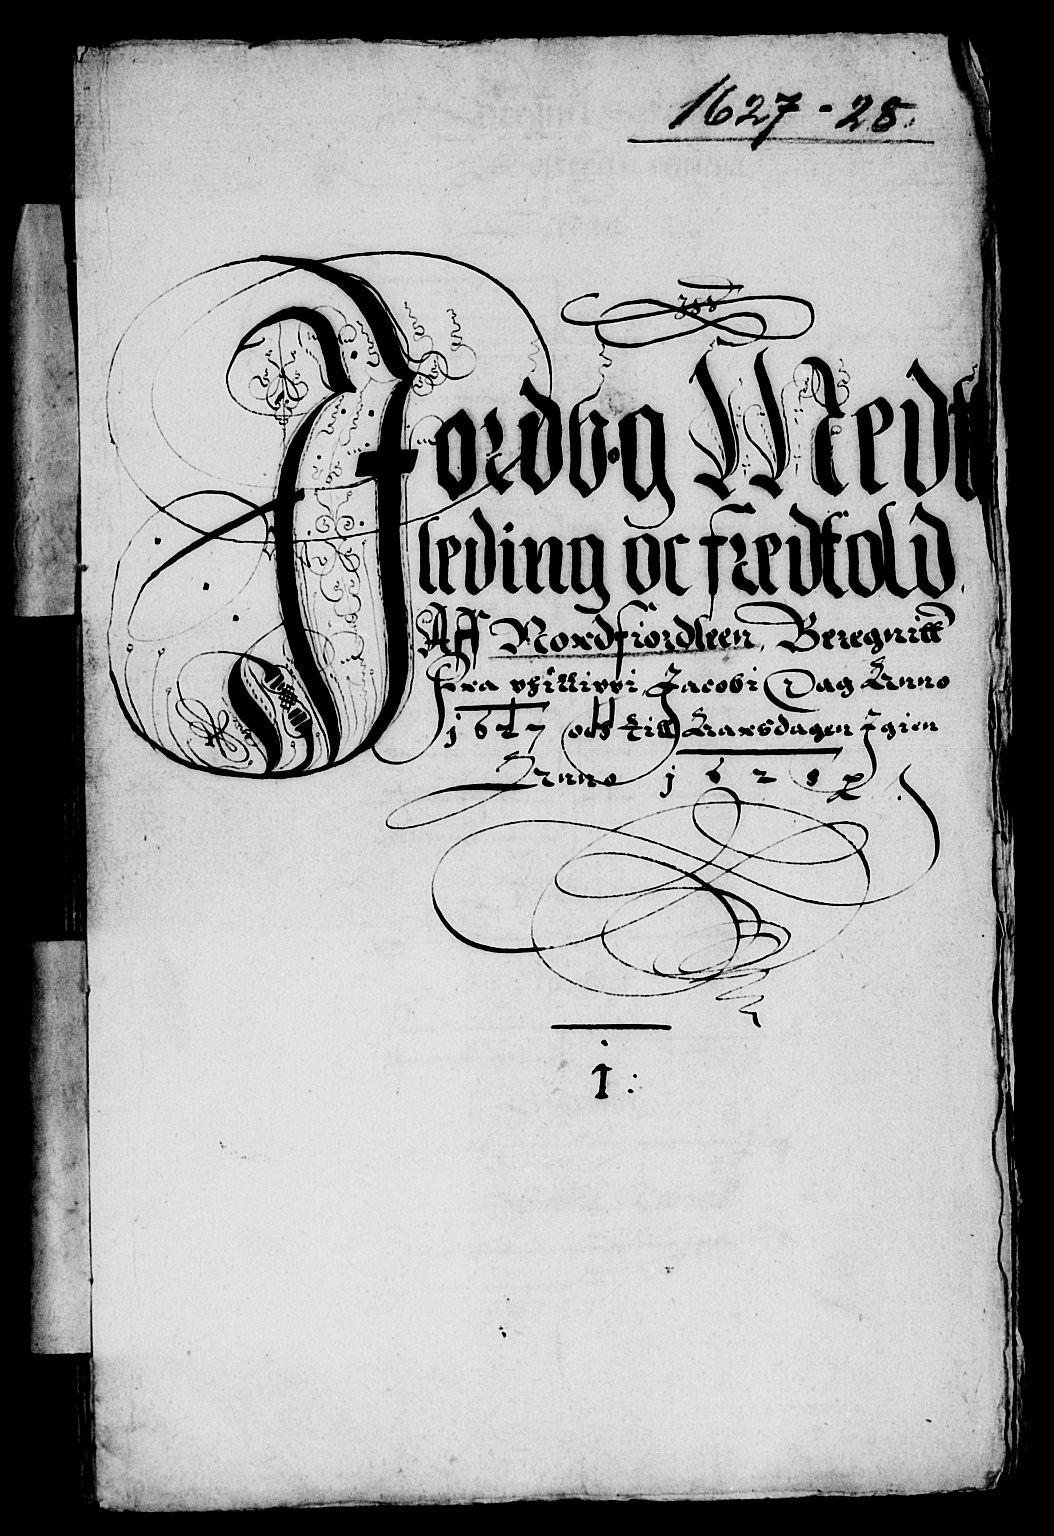 1627 - 28.
Jordbog Medt
leding oc fredtold
Aff Nordfiordleen, Beregnitt
fra philippi Jacobi Dag Anno
1627 och till Aarsdagen Igien
Anno 1628
1: